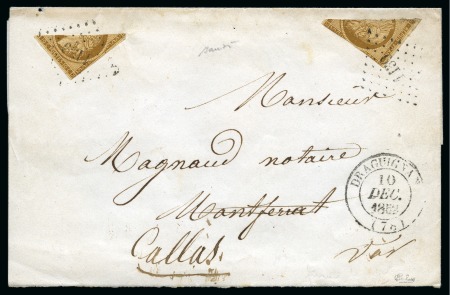 Monsieur
Magnaud notaire
Montferrat
Callas.
Var
DRAGUIGNAN
10
DEC.
(78)